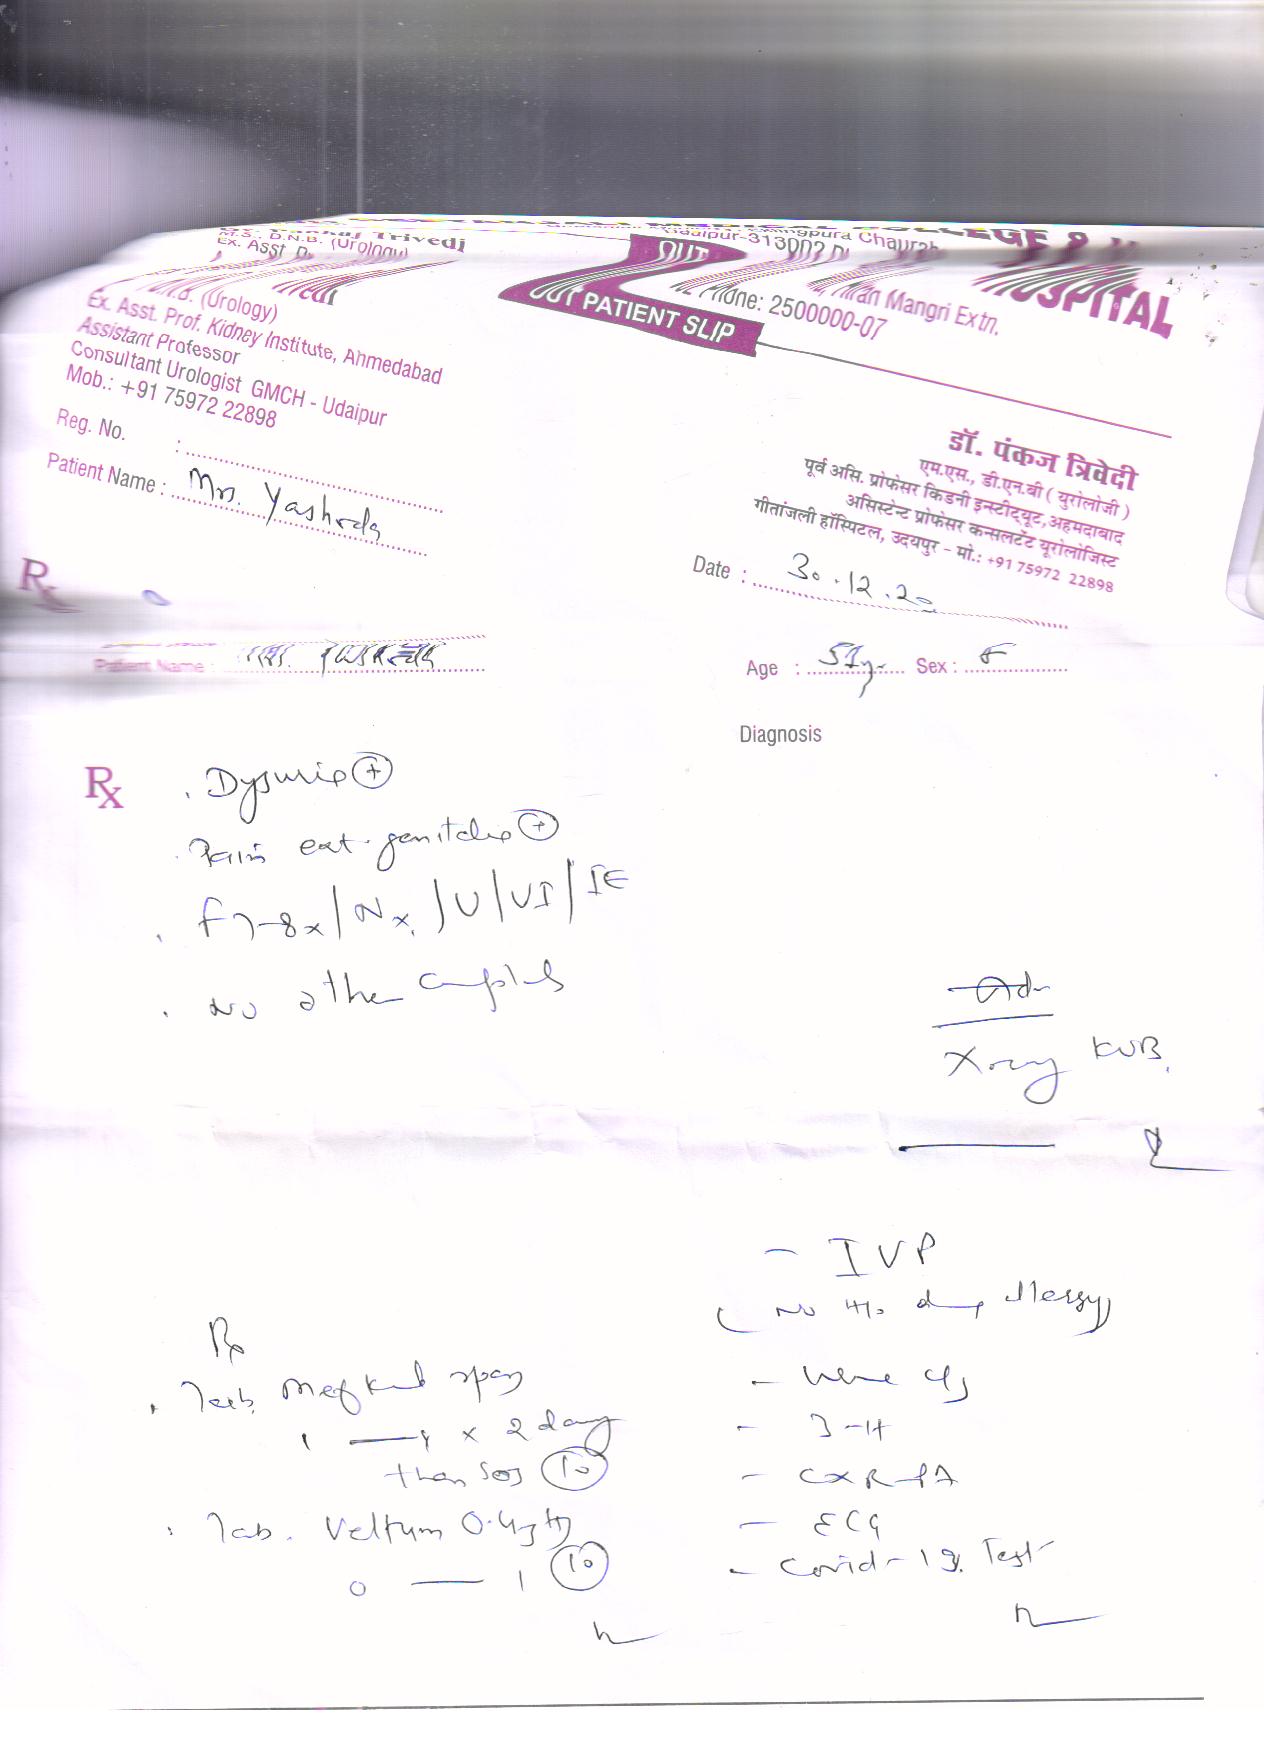 COLLEGE &
HOSPITAL
Trivedi
M.S., D.N.B. (Urology)
Ex. Asst
(Urology)
Ex. Asst. Prof. Kidney Institute, Ahmedabad
Assistant Professor
Consultant Urologist GMCH - Udaipur
Mob.: +91 75972 22898
Udaipur-313002
Mangri Extn.
Phone: 2500000-07
OUT
OUT PATIENT SLIP
डॉ. पंकज त्रिवेदी
एम.एस., डी.एन.बी ( युरोलोजी )
पूर्व असि. प्रोफेसर किडनी इन्स्टीट्यूट, अहमदाबाद
असिस्टेन्ट प्रोफेसर कन्सलटेंट यूरोलोजिस्ट
गीतांजली हॉस्पिटल, उदयपुर - मो.: +91 75972 22898
Reg. No. :
Patient Name : Mrs. Yashoda
Date : 30.12.20
Rx
Patient Name :
Age : 51yr Sex : F
Diagnosis
Rx
. Dysuria (+)
. Pain ext. genitalia (+)
. F 7-8x / Nx / U / UI / IE
. No other complaints
Adv
Xray KUB.
- IVP
( No H/o drug allergy)
- Urine c/s
- CXR-PA
- ECG
- Covid-19 Test
Rx
. Tab. Meftal spas
1 — 1 x 2 days
then SOS (10)
. Tab. Veltam 0.4mg
0 — 1 (10)